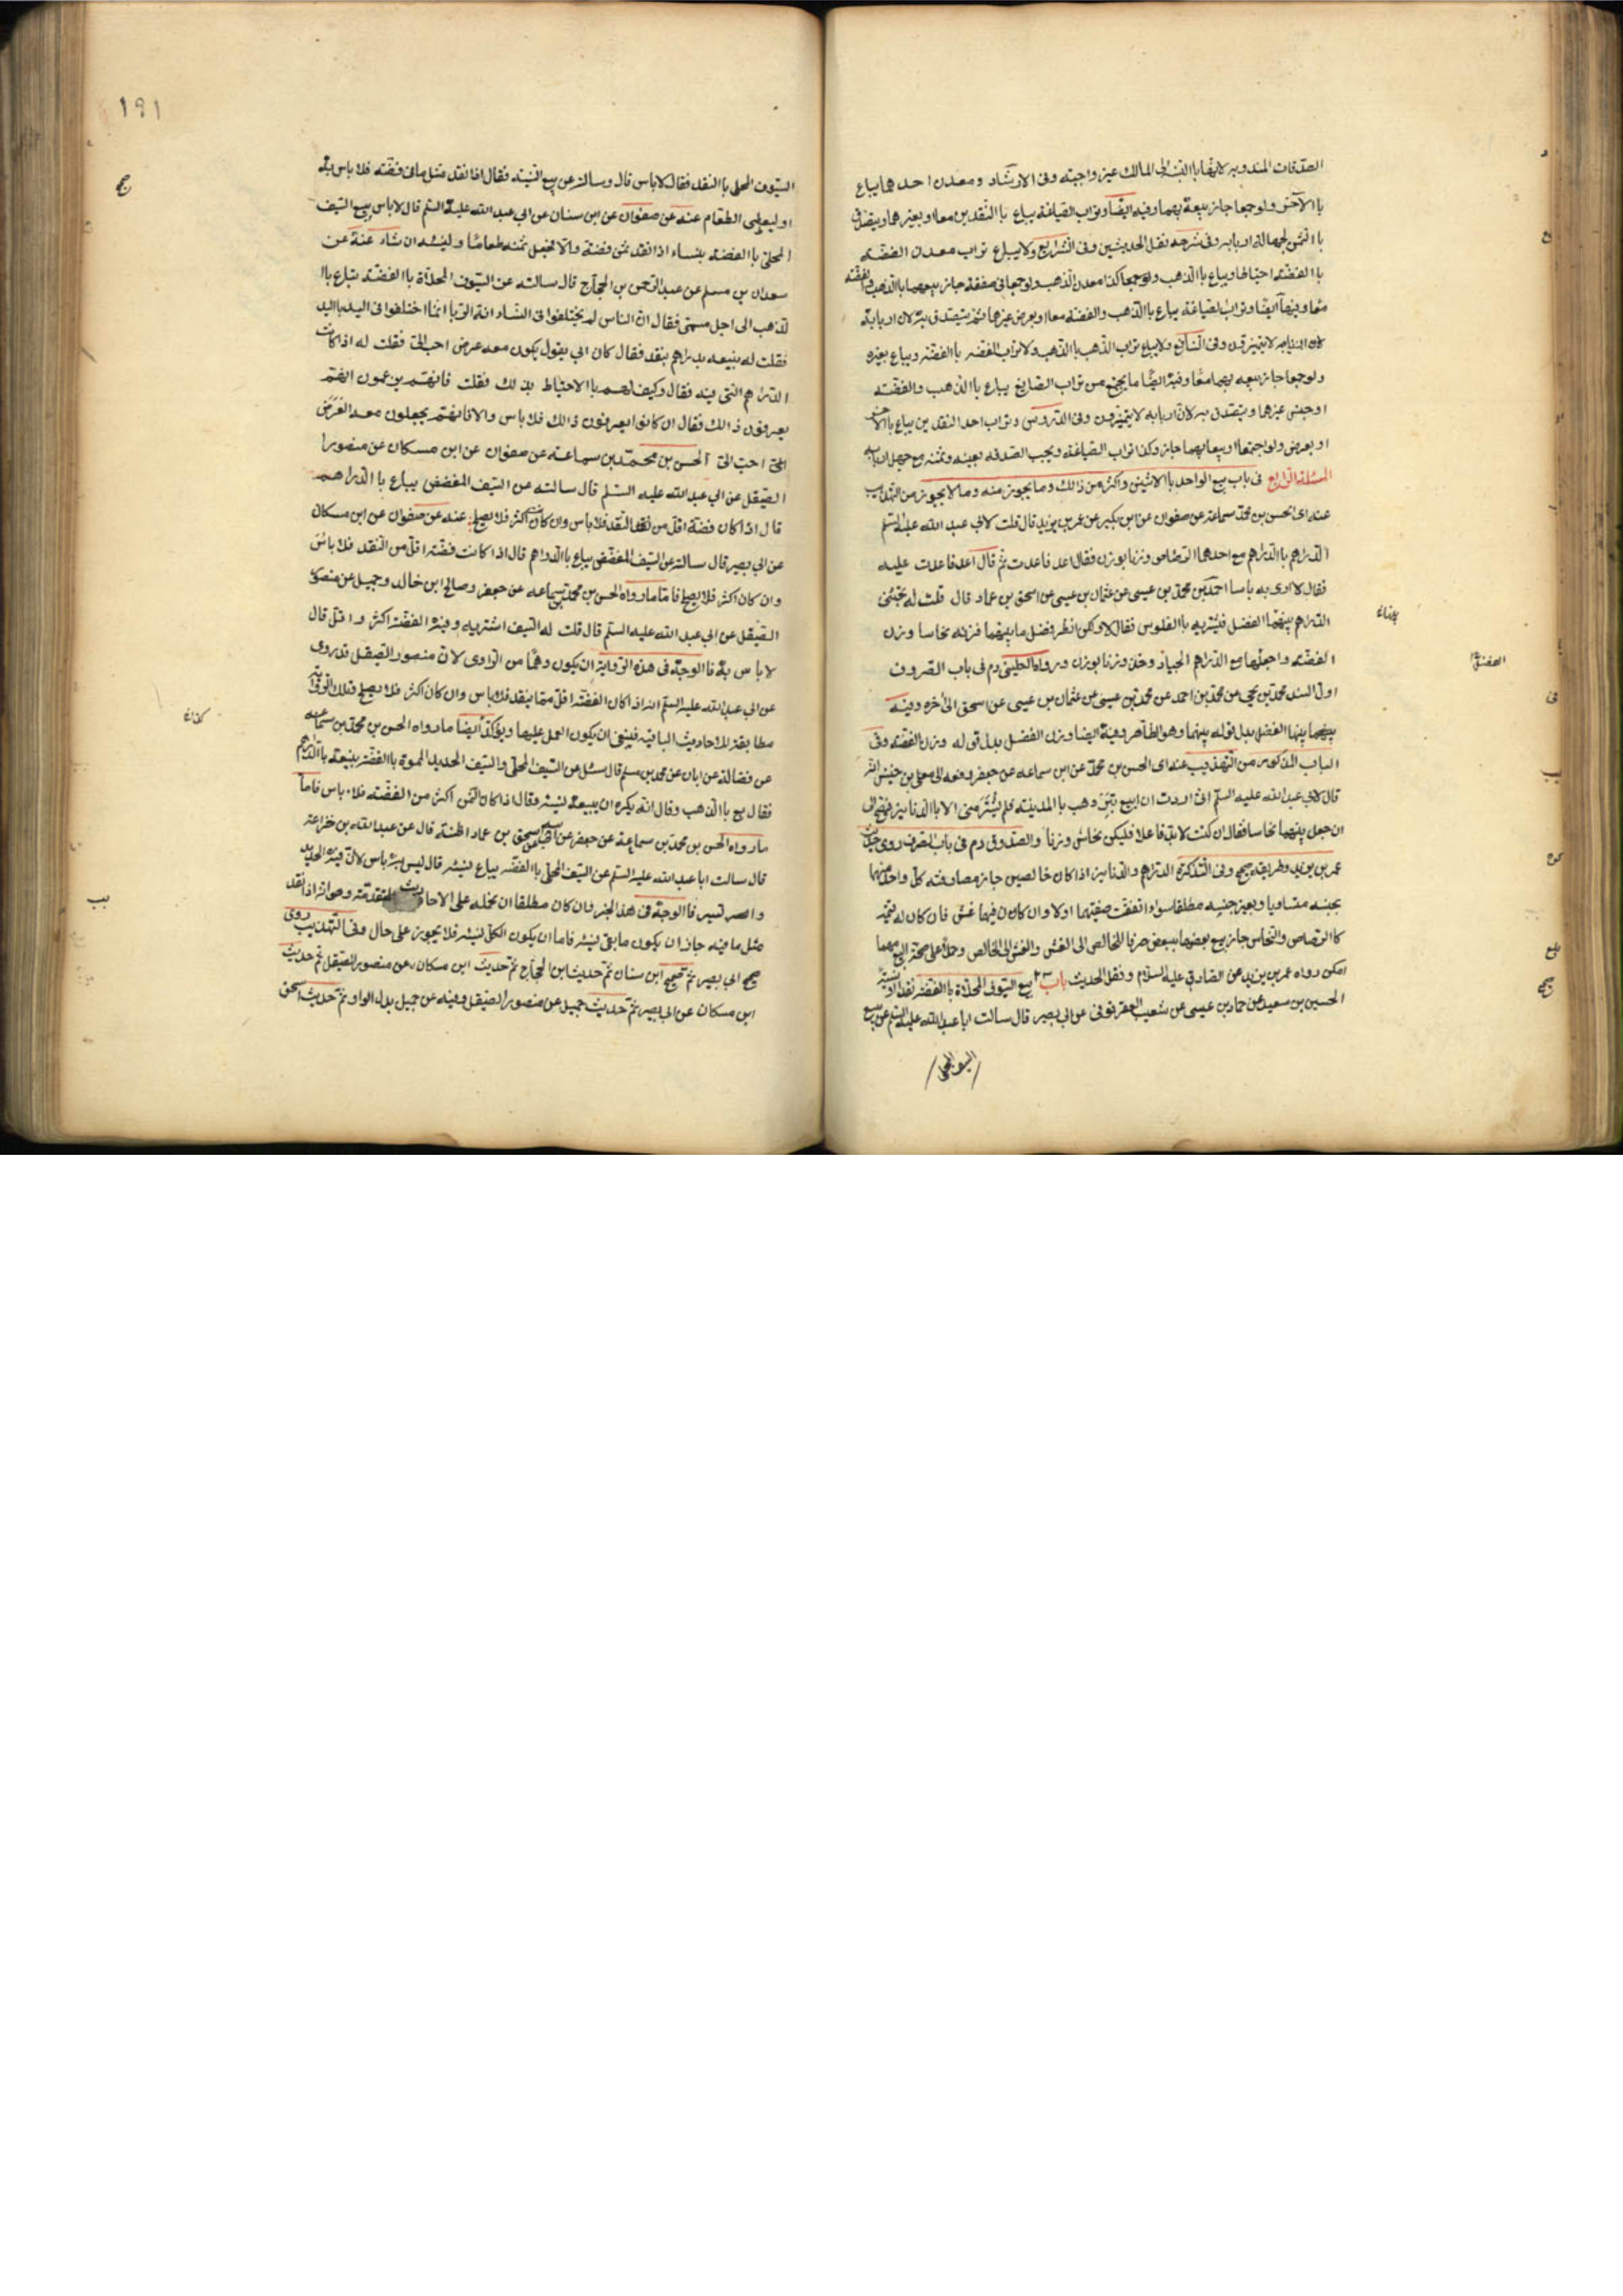 الصدقات المندوبه لانها بالنسبة الى المالك غير واجبة وفى الارشاد ومعدن احدهما يباع
بالآخر ولو جمعا جاز بيعه بهما وفيه ايضا وتراب الصياغة يباع باالنقدين معا او بغيرهما ويتصدق
باالثمن لجهالة اربابه وفى شرحه نقل الحديثين وفى الشرايع ولا يباع تراب معدن الفضه
باالفضّه احتياطا ويباع باالذهب وكذا معدن الذهب ولو جمعا فى صفقة جاز بيعهما باالذهب والفضّه
معا وفيها ايضا وتراب الصياغة يباع باالذهب والفضه معا او بعرض غيرهما ثم يتصدق به لان اربابه
لا يتميزون وفى النافع ولا يباع تراب الذهب باالذهب ولا تراب الفضه باالفضه ويباع بغيره
ولو جمعا جاز بيعه بهما معا وفيه ايضا ما يجتمع من تراب الصايغ يباع باالذهب والفضّه
او جنس غيرهما ويتصدق به لان اربابه لا يتميزون وفى الدروس وتراب احد النقدين يباع باالاخر
او بعرض ولو اجتمعا وبيعا بهما جاز وكذا تراب الصياغة ويجب الصدقه بعينه وثمنه مع جهل اربابه
المسئلة الرابع فى باب بيع الواحد باالاثنين واكثر من ذالك وما يجوز منه وما لا يجوز من التهذيب
عنه اى الحسن بن محمد سماعة عن صفوان عن ابن بكير عن عمر بن يزيد قال قلت لابى عبد الله عليه السلم
الدراهم باالدراهم مع احدهما الرصاص وزنا بوزن فقال اعد فاعدت ثم قال اعد فاعدت عليه
فقال لا ارى به باسا احمد بن محمد بن عيسى عن عثمان بن عيسى عن اسحق بن عمار قال قلت له تجئنى
الدراهم بينهما الفضل فنشتريه باالفلوس فقال لا ولكن انظر فضل ما بينهما فزنه نحاسا وزن
الفضّه واجعلها مع الدراهم الجياد وخذ وزنا بوزن ورواه الكلينى رم فى باب الصروف
اول السند محمد بن يحيى عن محمد بن احمد عن محمد بن عيسى عن عثمان بن عيسى عن اسحق الى آخره وفيه
بينهما الفضل بدل قوله بينهما وهو الظاهر وفيه ايضا وزن الفضل بدل قوله وزن الفضه وفى
الباب المذكور من التهذيب عنه اى الحسن بن محمد عن ابن سماعه عن جعفر رفعه الى معلى بن خنيس انه
قال لابى عبد الله عليه السلم انى اردت ان ابيع تبر ذهب باالمدينه فلم يشتر منى الا باالدنانير فيصح لى
ان جعل بينهما نحاسا فقال ان كنت لا بد فاعلا فليكن نحاس وزنا والصدوق رم فى باب الصرف روى حديث
عمر بن يزيد وطريقه صحيح وفى التذكرة الدراهم والدنانير اذا كان خالصين جاز مصارفة كل واحد منهما
بجنسه متساويا وبغير جنسه مطلقا سواء اتفقت صفتهما او لا وان كان فيهما غش فان كان له قيمة
كاالرصاص والنحاس جاز بيع بعضهما ببعض صرفا للخالص الى الغش والغش الى الخالص وحملا على صحة البيع مهما
امكن رواه عمر بن يزيد عن الصادق عليه السلام ونقل الحديث باب ٢٣ بيع السيوف المحلاة باالفضه نقدا او نسية
الحسين بن سعيد عن حماد بن عيسى عن شعيب العقرقوفى عن ابى بصير قال سالت ابا عبد الله عليه السلم عن بيع
السيوف المحلى
١٩١
السيوف المحلى باالنقد فقال لاباس قال وسالته عن بيع النسيه فقال اذا نقد مثل ما فى فضته فلا باس به
او ليعطى الطعام عنه عن صفوان عن ابن سنان عن ابى عبد الله عليه السلم قال لاباس ببيع السيف
المحلى باالفضه بنساء اذا نقد ثمن فضته والا فاجعل ثمنه طعاما ولينسه ان شاء عنه عن
سعدان بن مسلم عن عبد الرحمن بن الحجاج قال سالته عن السيوف المحلاة باالفضّه تباع باا
لذهب الى اجل مسمى فقال ان الناس لم يختلفوا فى النساء انه الربا انما اختلفوا فى اليد باليد
فقلت له نبيعه بدراهم بنقد فقال كان ابى يقول يكون معه عرض احب الى فقلت له اذا كانت
الدراهم التى فيه فقال وكيف لهم باالاحتياط بذلك فقلت فانهم يزعمون انهم
يعرفون ذالك فقال ان كانوا يعرفون ذالك فلا باس والا فانهم يجعلون معه العَرَض
احب الى الحسن بن محمد بن سماعة عن صفوان عن ابن مسكان عن منصور ا
الصيقل عن ابى عبد الله عليه السلم قال سالته عن السيف المفضض يباع باالدراهم
قال اذا كان فضة اقل من النقد فلا باس وان كان اكثر فلا يصلح عنه عن صفوان عن ابن مسكان
عن ابى بصير قال سالته عن السيف المفضض يباع باالدراهم قال اذا كانت فضته اقل من النقد فلا باس
وان كان اكثر فلا يصلح فاما ما رواه الحسن بن محمد بن سماعه عن جعفر وصالح ابن خالد وجميل عن منصور
الصيقل عن ابى عبد الله عليه السلم قال قلت له السيف اشتريه وفيه الفضّه اكثر واقل قال
لا باس به فاالوجه فى هذه الرواية ان يكون وهما من الراوى لان منصور الصيقل قد روى
عن ابى عبد الله عليه السلم انه اذا كان الفضّه اقل مما ينقد فلا باس وان كان اكثر فلا يصلح وتلك الرواية
مطابقة للاحاديث الباقيه فينبغى ان يكون العمل عليها ويؤكد ايضا ما رواه الحسن بن محمد بن سماعه
عن فضالة عن ابان عن محمد بن مسلم قال سئل عن السيف المحلى والسيف الحديد المموة باالفضّه نبيعه باالدراهم
فقال بع باالذهب وقال انه يكره ان يبيعه نسيه وقال اذا كان الثمن اكثر من الفضّه فلا باس فاما
ما رواه الحسن بن محمد بن سماعة عن جعفر عن اسحق بن عمار اظنه قال عن عبد الله بن خزاعة
قال سالت ابا عبد الله عليه السلم عن السيف المحلى باالفضه يباع نسيه قال ليس به باس لان فيه الحديد
والسير فاالوجه فى هذا الخبر وان كان مطلقا ان نحمله على الاحاديث المتقدمة وهو انه اذا نقد
مثل ما فيه جاز ان يكون ما بقى نسيه فاما ان يكون الكل نسيه فلا يجوز على حال وفى التهذيب روى
صحيح ابى بصير ثم صحيح ابن سنان ثم حديث ابن الحجاج ثم حديث ابن مسكان عن منصور الصيقل ثم حديث
ابن مسكان عن ابى بصير ثم حديث جميل عن منصور الصيقل وفيه عن جميل بدل الواو ثم حديث اسحق